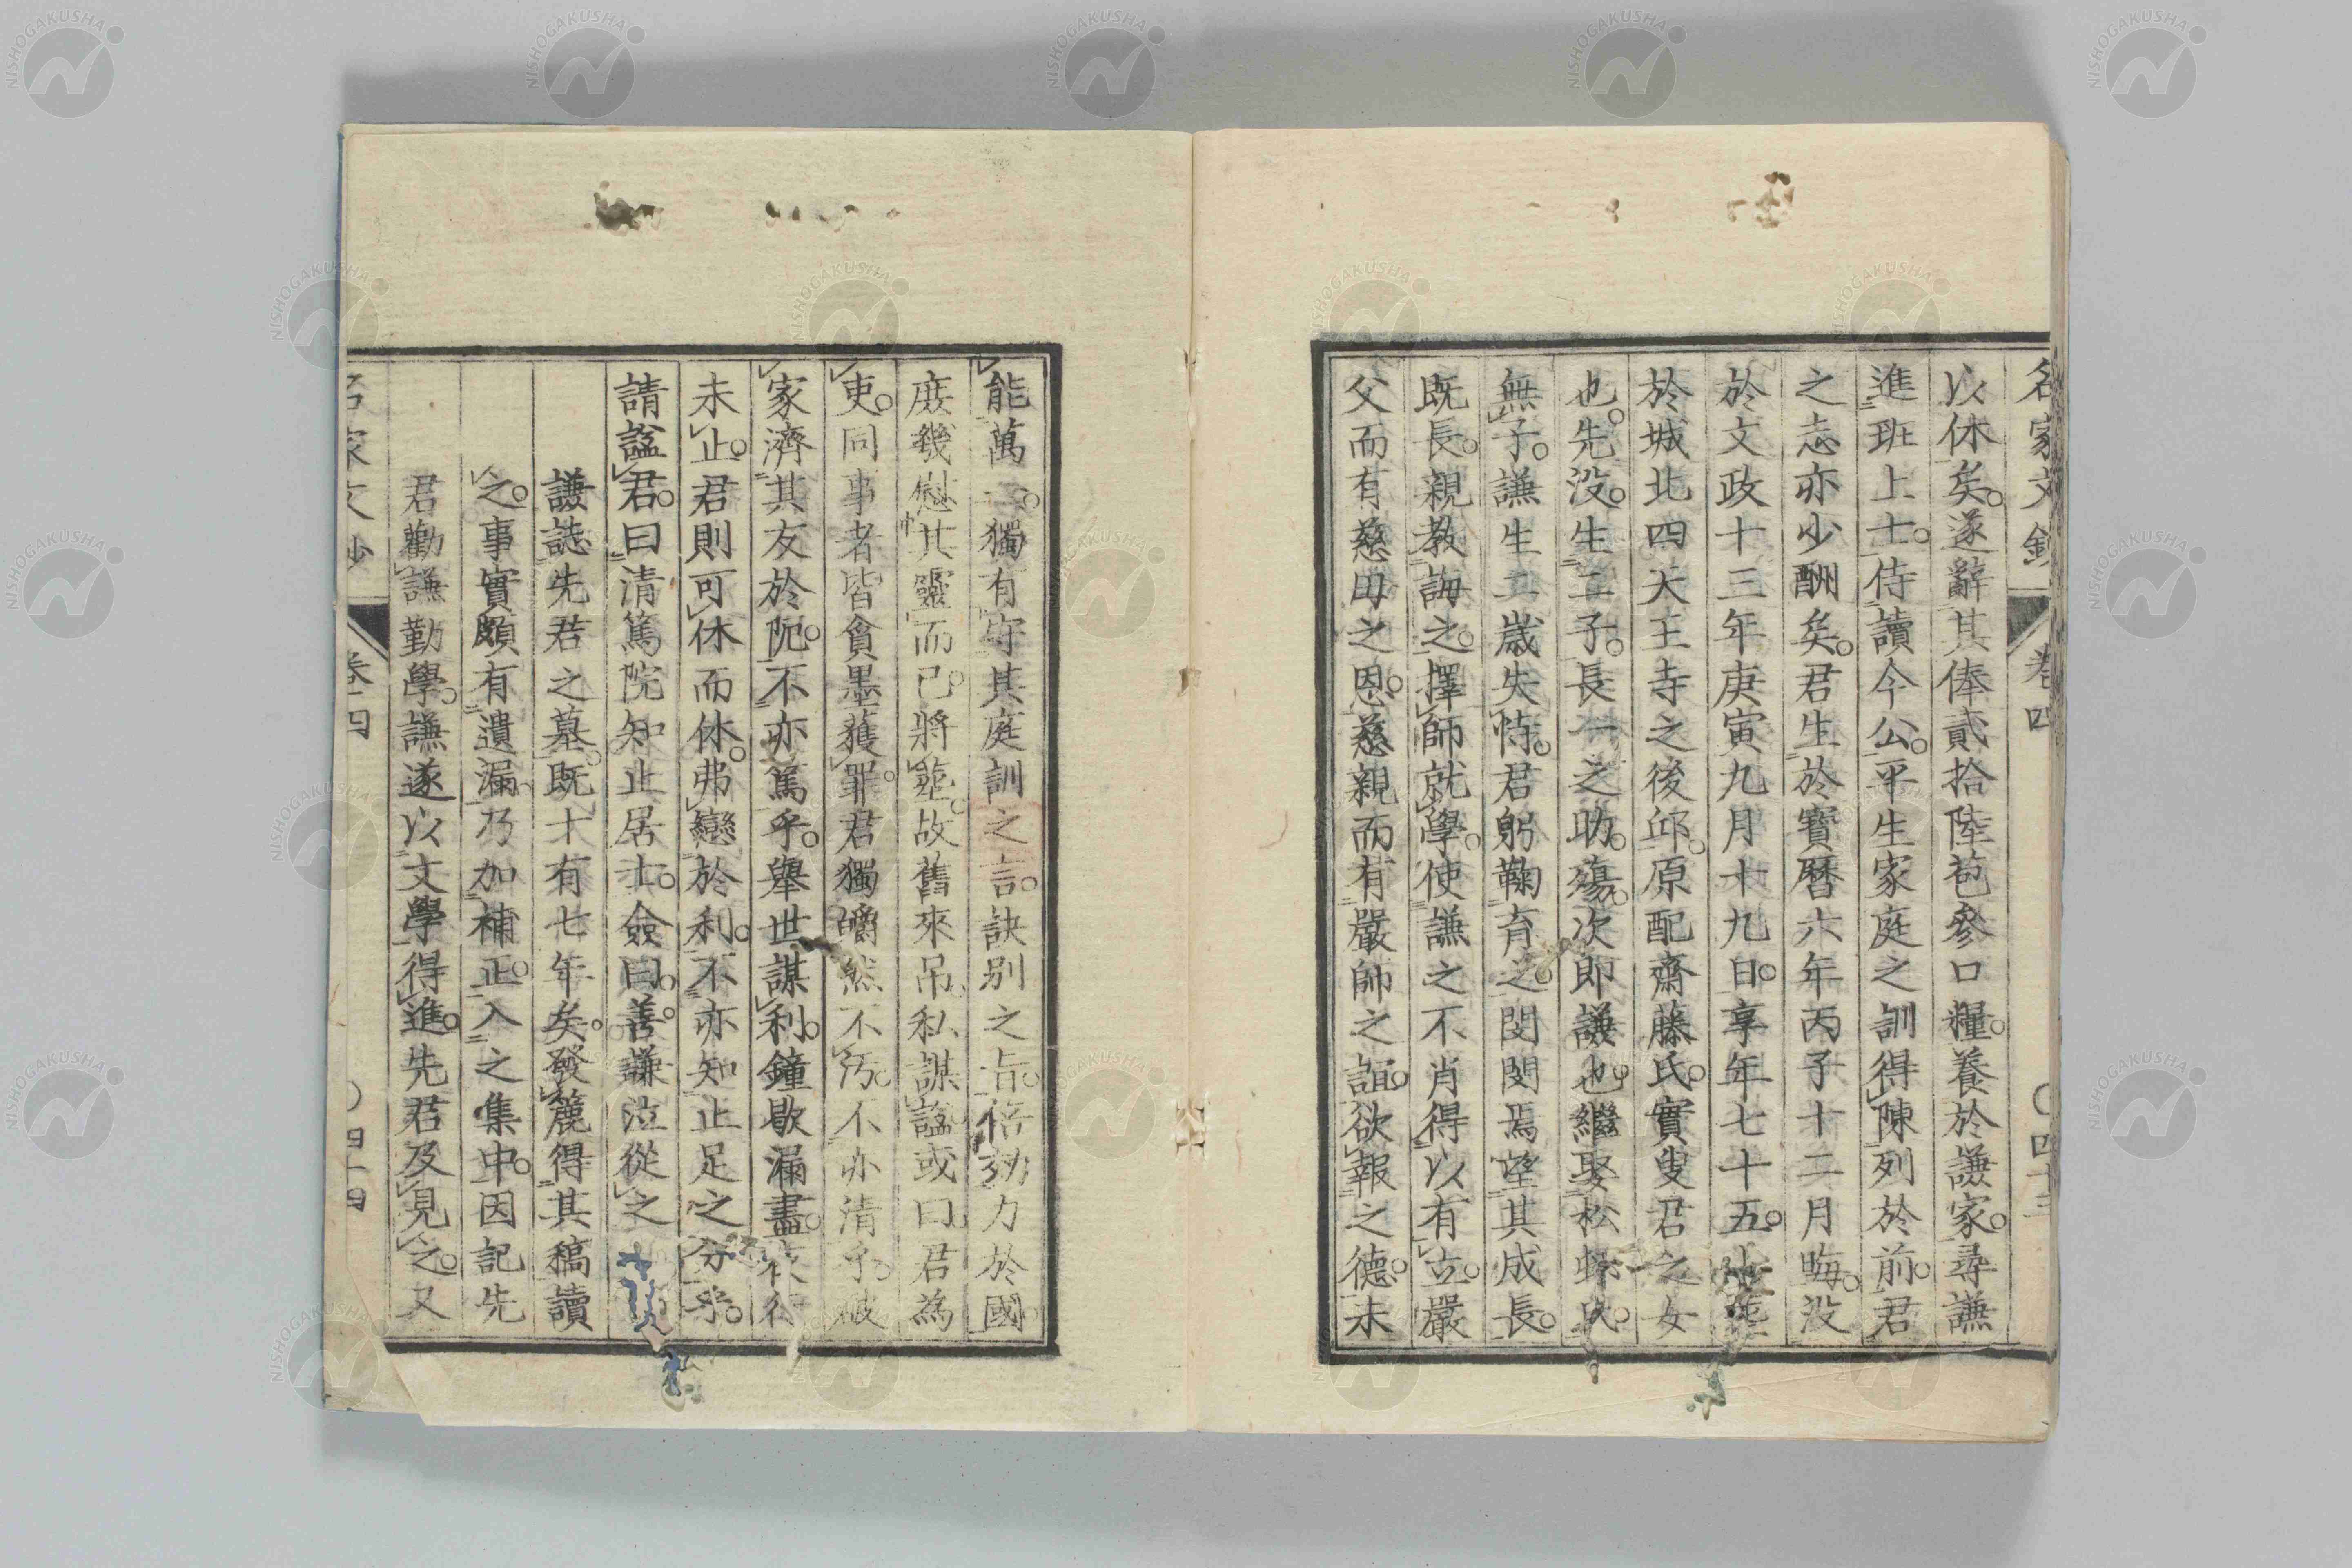 名家文鈔 卷四 〇四十三
以休矣。遂辭其俸貳拾陸苞參口糧。養於謙家。尋謙
進班上士。侍讀今公。平生家庭之訓得陳列於前。君
之志亦少酬矣。君生於寶曆六年丙子十二月晦。没
於文政十三年庚寅九月十九日。享年七十五。
於城北四天王寺之後邱。原配齋藤氏。實叟君之女
也。先没。生二子。長一之助。殤。次即謙也。繼娶松氏。
無子。謙生二歲失恃。君躬鞠育之。閔閔焉望其成長。
既長。親教誨之。擇師就學。使謙之不肖得以有立。嚴
父而有慈母之恩。慈親而有嚴師之誼。欲報之德。未
能萬一。獨有守其庭訓之言。訣別之旨。倍効力於國
庶幾慰其靈而已。將葬。故舊來吊。私謀諡。或曰。君爲
吏。同事者皆貪墨獲罪。君獨皭然不汚。不亦清乎。破
家濟其友於阨。不亦篤乎。舉世謀利。鐘歇漏盡。夜行
未止。君則可休而休。弗戀於利。不亦知止足之分乎。
請諡君。曰清篤院知止居士。僉曰。善。謙泣從之
謙誌先君之墓。既十有七年矣。發簏得其稿讀
之。事實頗有遺漏。乃加補正。入之集中。因記先
君勸謙勤學。謙遂以文學得進。先君及見之。又
名家文鈔 卷四 〇四十四
NISHOGAKUSHA